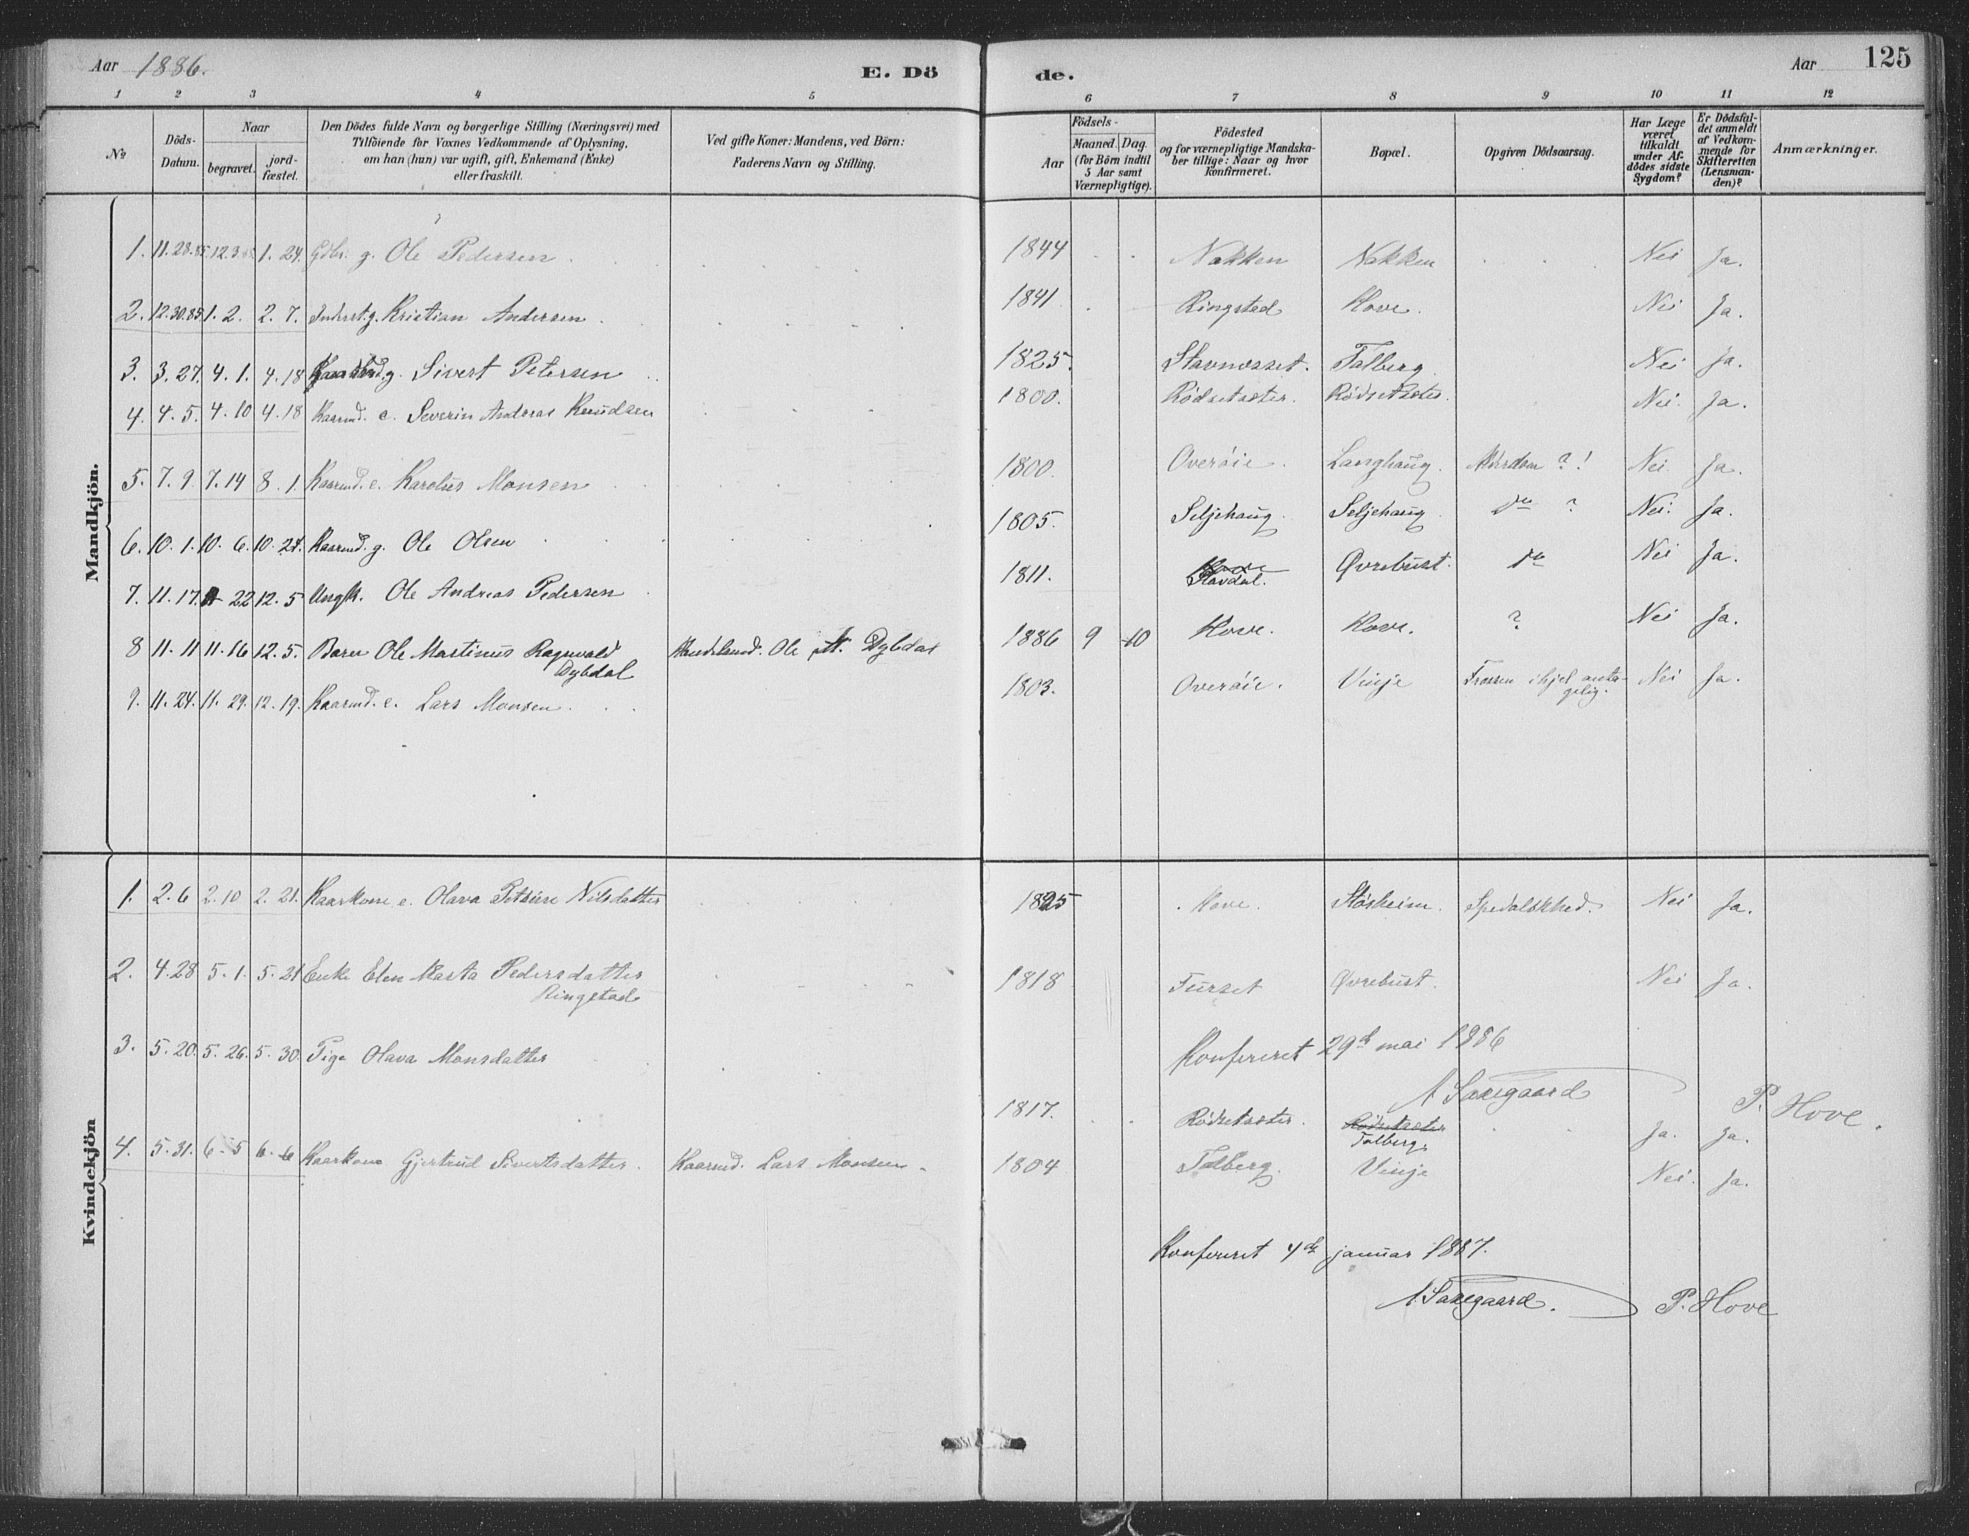 Aar 1886. E. Dö de. Aar 125
1 2 3 4 5 6 7 8 9 10 11 12
No
Döds-Datum.
Naar
begravet.
jord-fæstet.
Den Dödes fulde Navn og borgerlige Stilling (Næringsvei) med
Tilföiende for Voxnes Vedkommende af Oplysning,
om han (hun) var ugift, gift, Enkemand (Enke)
eller fraskilt.
Ved gifte Koner: Mandens, ved Börn:
Faderens Navn og Stilling.
Födsels-
Aar
Maaned. Dag.
(for Börn indtil
5 Aar samt
Værnepligtige).
Födested
og for værnepligtige Mandska-
ber tillige: Naar og hvor
Konfirmeret.
Bopæl.
Opgiven Dödsaarsag.
Har Læge
været
tilkaldt
under Af-
dödes sidste
Sygdom?
Er Dödsfal-
det anmeldt
af Vedkom-
mende for
Skifteretten
(Lensman-
den)?
Anmærkninger.
Mandkjön.
1. 11.28.85. 12.3 1. 24. Gbr. g. Ole Pedersen 1844 Nakken Nakken Nei Ja.
2. 12.30.85 1. 2. 2. 7. Inderst. g. Kristian Andersen 1841 Ringstad Hove. Nei Ja.
3. 3. 27. 4. 1. 4. 18 g. Sivert Petersen 1825. Stavnesset. Talberg. Nei Ja.
4. 4. 5. 4. 10 4. 18 Kaarmd. e. Severin Andreas Knudsen 1800. Rødsetsæter. Rødsetsæter. Nei. Ja.
5. 7. 9. 7. 14 8. 1. Kaarmd. e. Karolus Monsen 1800. Overøie. Langhaug. Alderdom ?! Nei. Ja.
6. 10. 1. 10. 6. 10. 24. Kaarmd. g. Ole Olsen 1805. Seljehaug. Seljehaug do ? Nei. Ja.
7. 11. 17. 22 12. 5 Ungk. Ole Andreas Pedersen 1811. Hove Stavdal. Øvrebust. do Nei Ja.
8 11. 11 11. 16 12. 5. Barn Ole Martinus Ragnvald
Dybdal Handelsmd. Ole N. Dybdal 1886 9 10 Hove. Hove. ? Nei Ja.
9. 11. 24. 11. 29. 12. 19. Kaarmd. e. Lars Monsen 1803. Overøie. Vinje Frossen ihjel anta-
gelig. Nei Ja.
Kvindekjön
1. 2. 6 2. 10 2. 21. Kaarkone e. Olava Petrine Nilsdatter 1825 Hove. Størheim. Spedalskhed. Nei Ja.
2. 4. 28 5. 1. 5. 21 Enke Elen Marta Pedersdatter
Ringstad 1818 Furset Øvrebust. Nei Ja.
3. 5. 20. 5. 26. 5. 30. Pige Olava Monsdatter
Konfereret 29de mai 1886
A Saxegaard P. Hove.
1817. Rødsetsæter. Rødsetsæter
Talberg. Ja. Ja.
4. 5. 31. 6. 5 6. 6 Kaarkone Gjertrud Sivertsdatter. Kaarmd. Lars Monsen. 1804 Talberg. Vinje Nei. Ja.
Konfereret 4de januar 1887.
A. Saxegaard. P. Hove